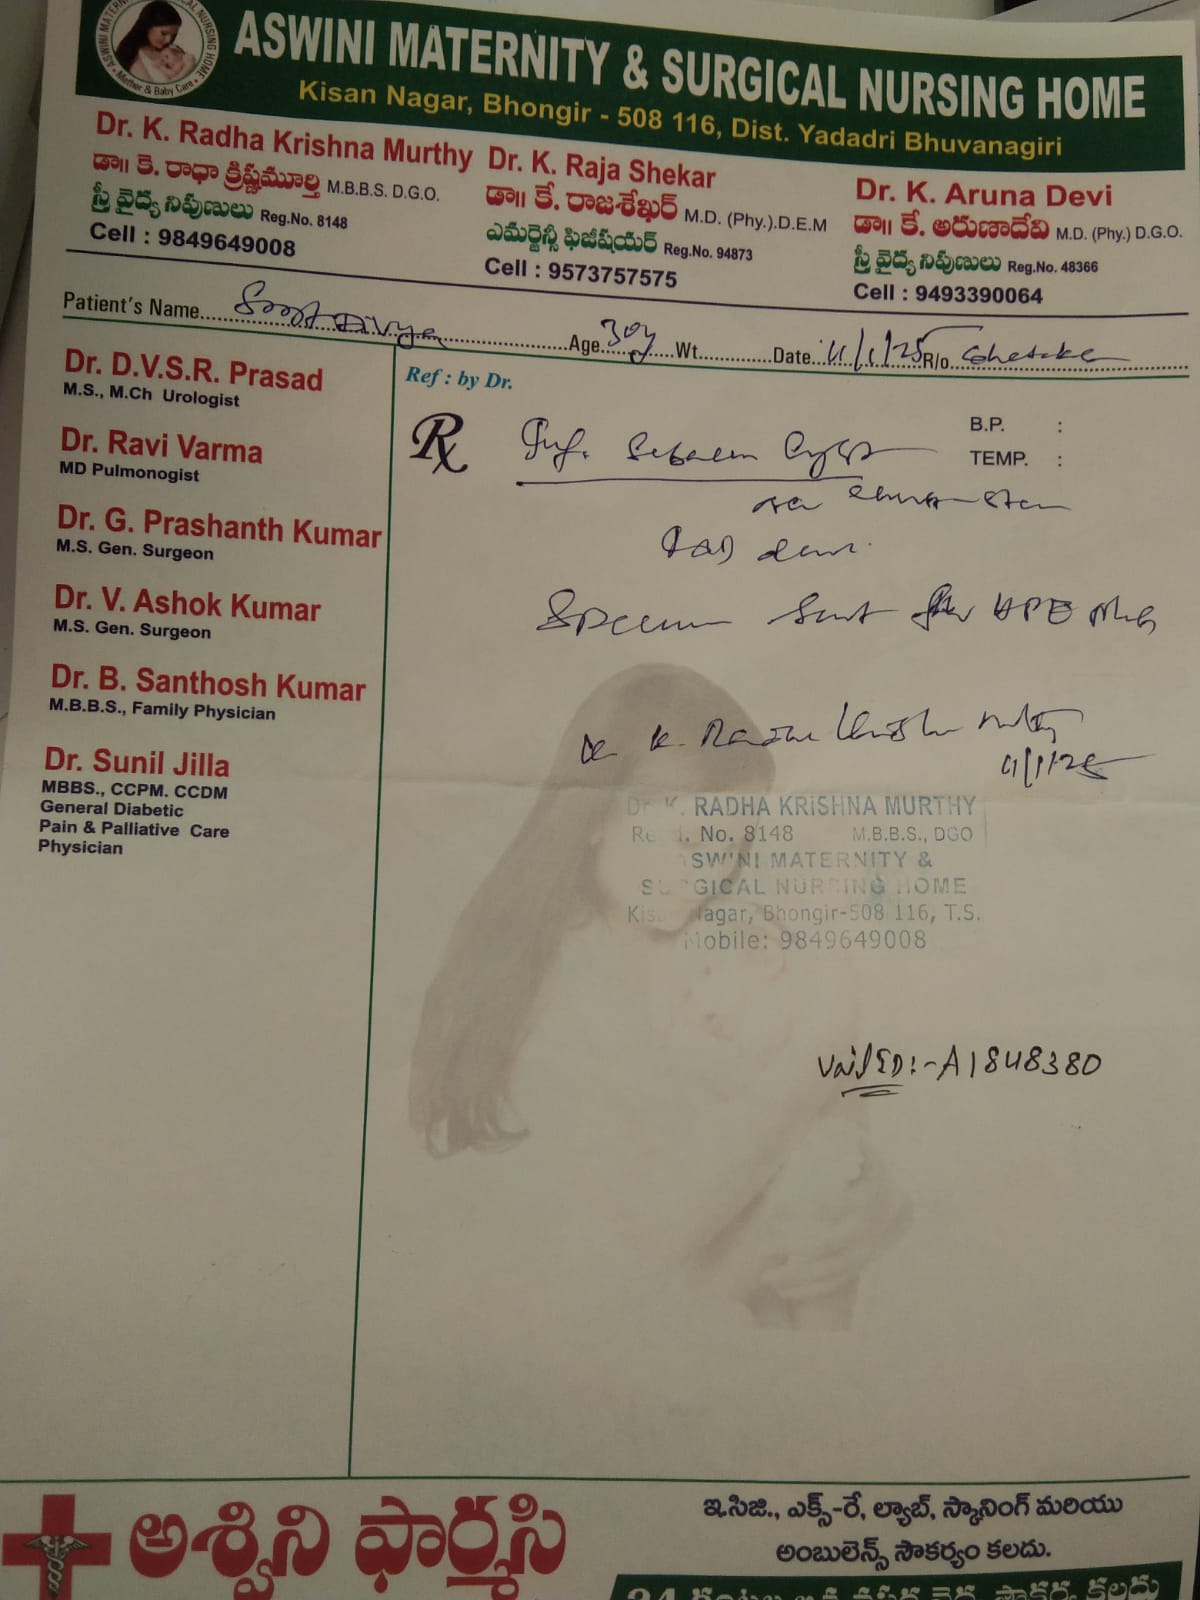 ASWINI MATERNITY & SURGICAL NURSING HOME
Mother & Baby Care
ASWINI MATERNITY & SURGICAL NURSING HOME
Kisan Nagar, Bhongir - 508 116, Dist. Yadadri Bhuvanagiri
Dr. K. Radha Krishna Murthy
డా॥ కె. రాధా క్రిష్ణమూర్తి M.B.B.S. D.G.O.
స్త్రీ వైద్య నిపుణులు Reg.No. 8148
Cell : 9849649008
Dr. K. Raja Shekar
డా॥ కే. రాజశేఖర్ M.D. (Phy.).D.E.M
ఎమర్జెన్సీ ఫిజీషియర్ Reg.No. 94873
Cell : 9573757575
Dr. K. Aruna Devi
డా॥ కే. అరుణాదేవి M.D. (Phy.) D.G.O.
స్త్రీ వైద్య నిపుణులు Reg.No. 48366
Cell : 9493390064
Patient's Name Divya Age 30y Wt. Date 11/1/25 R/o
Dr. D.V.S.R. Prasad
M.S., M.Ch Urologist
Dr. Ravi Varma
MD Pulmonogist
Dr. G. Prashanth Kumar
M.S. Gen. Surgeon
Dr. V. Ashok Kumar
M.S. Gen. Surgeon
Dr. B. Santhosh Kumar
M.B.B.S., Family Physician
Dr. Sunil Jilla
MBBS., CCPM. CCDM
General Diabetic
Pain & Palliative Care
Physician
Ref : by Dr.
B.P. :
TEMP. :
Rx
Specimen Sent for HPE
Dr K. Radha Krishna Murthy
11/1/25
Dr. K. RADHA KRISHNA MURTHY
Regd. No. 8148 M.B.B.S., DGO
ASWINI MATERNITY &
SURGICAL NURSING HOME
Kisan Nagar, Bhongir-508 116, T.S.
Mobile: 9849649008
ID:-A1848380
అశ్విని ఫార్మసి
ఇ.సిజి., ఎక్స్-రే, ల్యాబ్, స్కానింగ్ మరియు
అంబులెన్స్ సౌకర్యం కలదు.